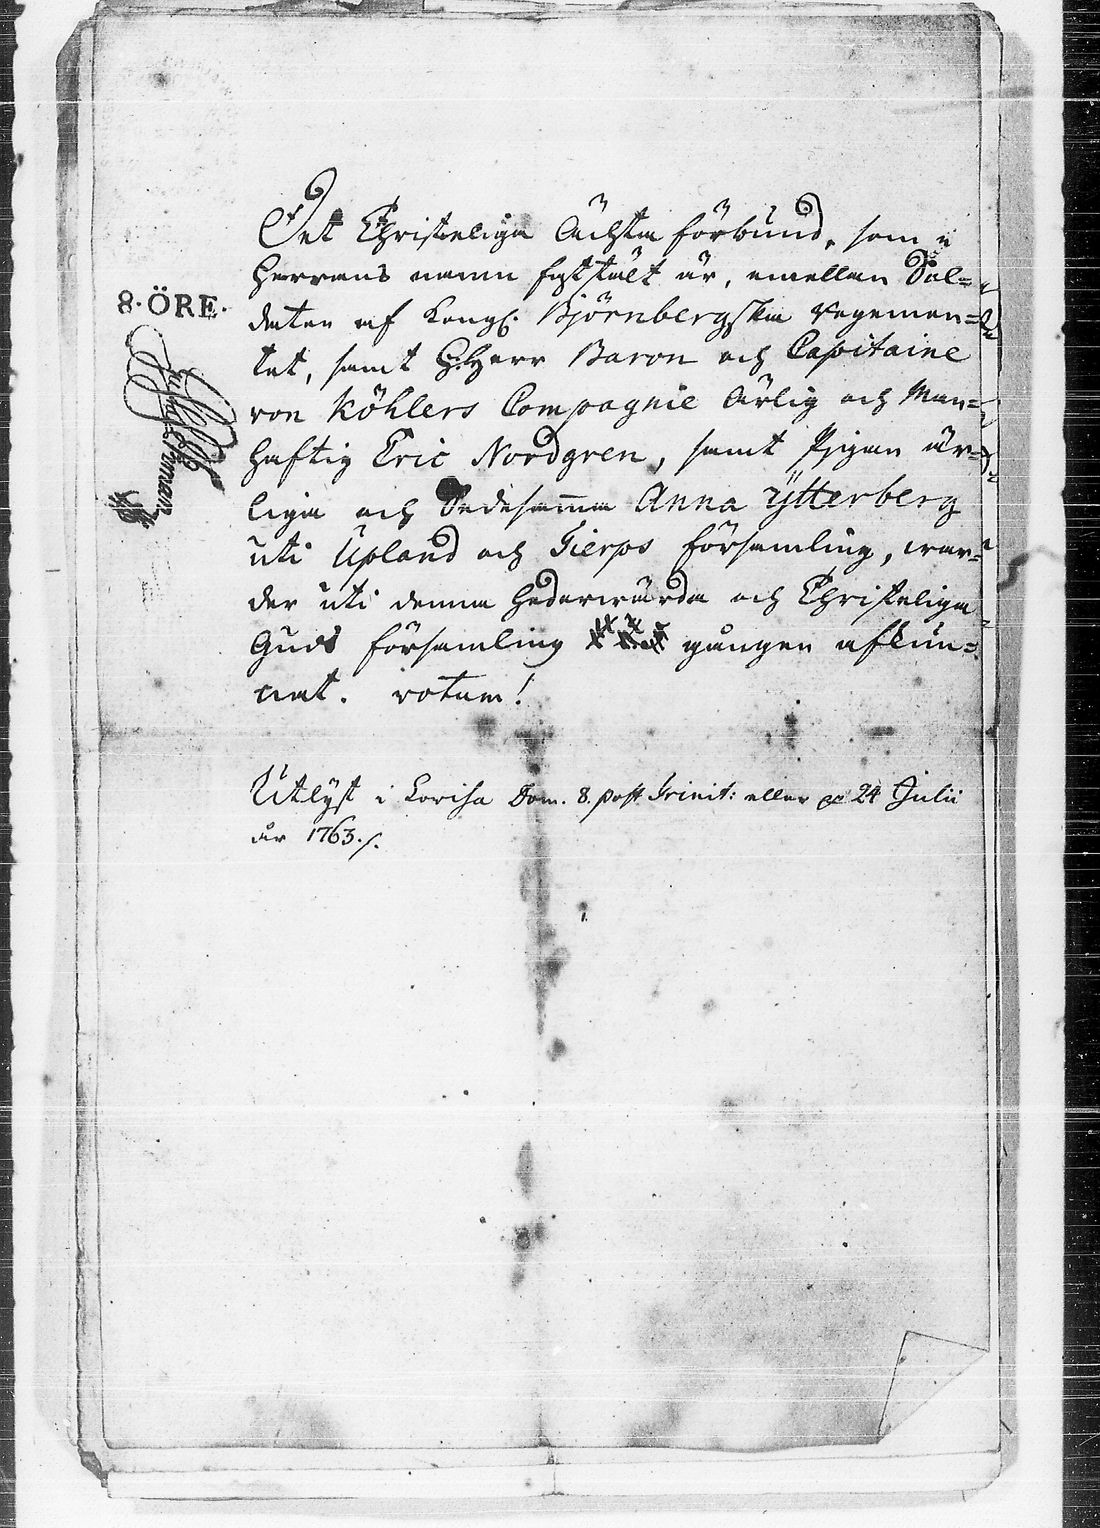 8·ÖRE·
Det Christeliga Ächta förbund, som i
Herrans namn fastställt är, emellan Sol=
daten af Kongl. Björnbergska Regemen=
tet, samt H:Herr Baron och Capitaine
von Köhlers Compagnie Ärlig och Man=
haftig Eric Nordgren, samt Pigan är=
liga och Dedesamma Anna Ytterberg
uti Upland och Tierps församling, war=
der uti denna Hedervärda och Christeliga
Guds församling gången afkun=
nat. votum!
Utlyst i Lovisa Dom. 8. post Trinit: eller 24 Julii
år 1763./.